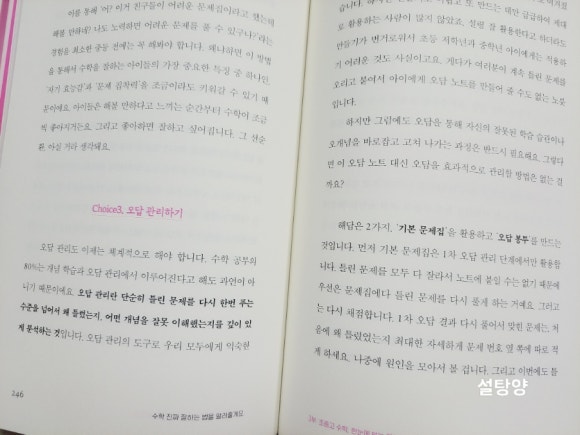 이를 통해 '어? 이거 친구들이 어려운 문제집이라고 했는데
해볼 만하네? 나도 노력하면 어려운 문제를 풀 수 있구나?'라는
경험을 최소한 중등 전에는 꼭 해봐야 합니다. 왜냐하면 이 방법
을 통해서 수학을 잘하는 아이들의 가장 중요한 특징 중 하나인,
'자기 효능감'과 '문제 집착력'을 조금이라도 키워갈 수 있기 때
문이에요. 아이들은 해볼 만하다고 느끼는 순간부터 수학이 조금
씩 좋아지거든요. 그리고 좋아하면 잘하고 싶어집니다. 그 선순
환, 아실 거라 생각해요.
Choice3, 오답 관리하기
오답 관리도 이제는 체계적으로 해야 합니다. 수학 공부의
80%는 개념 학습과 오답 관리에서 이루어진다고 해도 과언이 아
니기 때문이에요. 오답 관리란 단순히 틀린 문제를 다시 한번 푸는
수준을 넘어서 왜 틀렸는지, 어떤 개념을 잘못 이해했는지를 깊이 있
게 분석하는 것입니다. 오답 관리의 도구로 우리 모두에게 익숙한
246
수학 진짜 잘하는 법을 알려줄게요
로 활용하는 사람이 많지 않았죠. 설령 잘 활용한다고 하더라도
만들기가 번거로워서 초등 저학년과 중학년 아이에게는 적용하
기 어려운 것도 사실이고요. 게다가 여러분이 계속 틀린 문제를
오리고 붙여서 아이에게 오답 노트를 만들어 줄 수도 없는 노릇
입니다.
하지만 그럼에도 오답을 통해 자신의 잘못된 학습 습관이나
오개념을 바로잡고 고쳐 나가는 과정은 반드시 필요해요. 그렇다
면 이 오답 노트 대신 오답을 효과적으로 관리할 방법은 없는 걸
까요?
해답은 2가지, '기본 문제집'을 활용하고 '오답 봉투'를 만드는
것입니다. 먼저 기본 문제집은 1차 오답 관리 단계에서만 활용합
니다. 틀린 문제를 모두 다 잘라서 노트에 붙일 수는 없기 때문에
우선은 문제집에다 틀린 문제를 다시 풀게 하는 거예요. 그러고
는 다시 채점합니다. 1차 오답 결과 다시 풀어서 맞힌 문제는, 처
음에 왜 틀렸었는지 최대한 자세하게 문제 번호 옆 쪽에 따로 적
게 하세요. 나중에 원인을 모아서 볼 겁니다. 그리고 이번에도 틀
설탕양